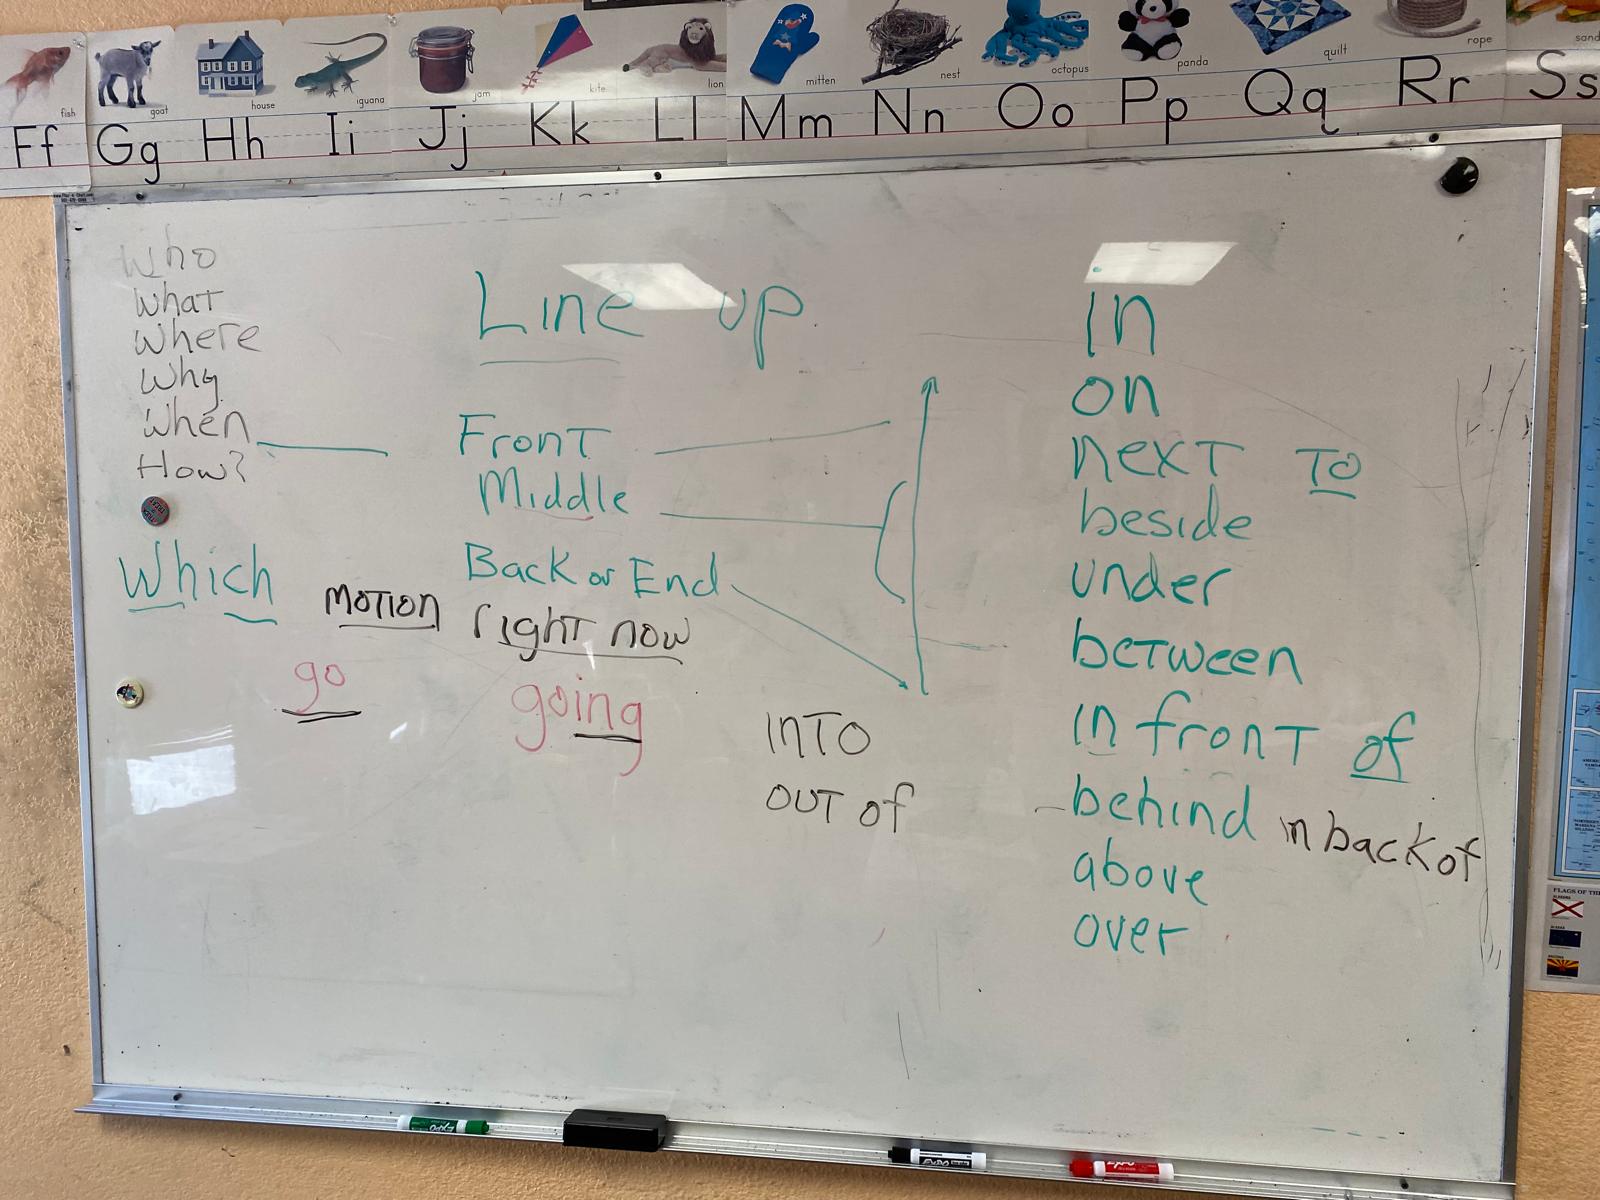 fish
goat
house
iguana
jam
kite
lion
mitten
nest
octopus
panda
quilt
rope
Ff Gg Hh Ii Jj Kk Ll Mm Nn Oo Pp Qq Rr Ss
Who
What
Where
Why
When
How?
Which
Line up
Front
Middle
Back or End
MOTION right now
go going
INTO
OUT of
in
on
next to
beside
under
between
in front of
behind in back of
above
over
FLAGS OF THE
EXPO
EXPO
EXPO